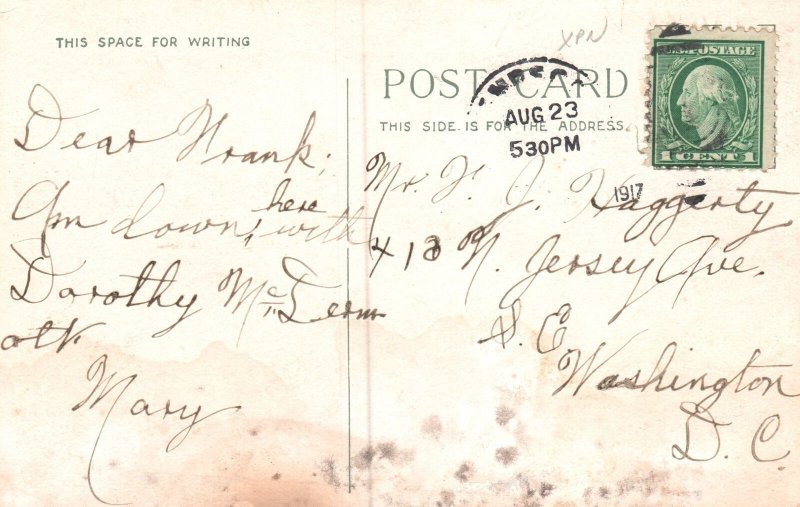 THIS SPACE FOR WRITING
Dear Frank;
Am down here with
Dorothy McDerm
ott.
Mary
XPN
POST CARD
THIS SIDE IS FOR THE ADDRESS
AUG 23
530PM
1917
U.S. POSTAGE
1 CENT 1
Mr. F. J. Haggerty
413 N. Jersey Ave.
S. E.
Washington
D. C.